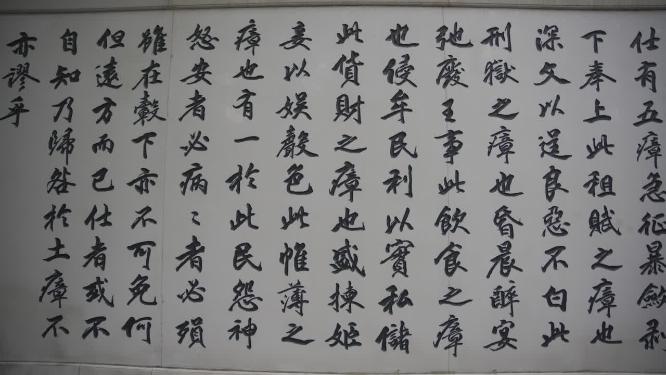 仕有五瘴急征暴斂剥
下奉上此租賦之瘴也
深文以逞良惡不白此
刑獄之瘴也昏晨醉宴
弛廢王事此飲食之瘴
也侵牟民利以實私儲
此貨財之瘴也盛揀姬
妾以娛聲色此帷薄之
瘴也有一於此民怨神
怒安者必病〻者必殞
雖在轂下亦不可免何
但遠方而已仕者或不
自知乃歸咎於土瘴不
亦謬乎